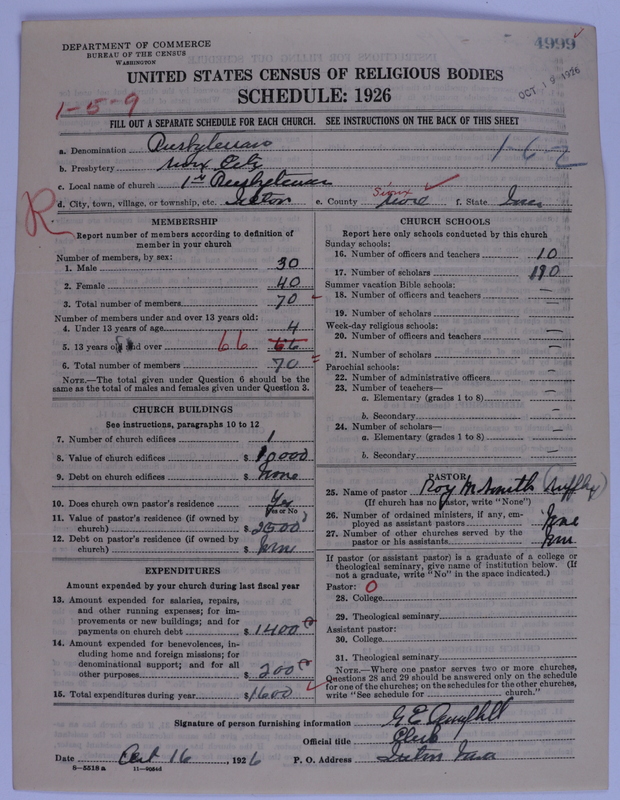 DEPARTMENT OF COMMERCE
BUREAU OF THE CENSUS
WASHINGTON
4999
OCT 19 1926
UNITED STATES CENSUS OF RELIGIOUS BODIES
SCHEDULE: 1926
1-5-9
FILL OUT A SEPARATE SCHEDULE FOR EACH CHURCH. SEE INSTRUCTIONS ON THE BACK OF THIS SHEET
1-6-2
a. Denomination
b. Presbytery Sioux City
c. Local name of church 1st
d. City, town, village, or township, etc. e. County Sioux f. State Iowa
R
MEMBERSHIP
Report number of members according to definition of
member in your church
Number of members, by sex:
1. Male 30
2. Female 40
3. Total number of members 70
Number of members under and over 13 years old:
4. Under 13 years of age 4
5. 13 years old and over 66 66
6. Total number of members 70
NOTE.—The total given under Question 6 should be
same as the total of males and females given under Question 3.
CHURCH BUILDINGS
See instructions, paragraphs 10 to 12
7. Number of church edifices 1
8. Value of church edifices $ 10000
9. Debt on church edifices $ None
10. Does church own pastor's residence Yes
Yes or No
11. Value of pastor's residence (if owned by
church) $ 2500
12. Debt on pastor's residence (if owned by
church) $ None
EXPENDITURES
Amount expended by your church during last fiscal year
13. Amount expended for salaries, repairs,
and other running expenses; for im-
provements or new buildings; and for
payments on church debt $ 1400
14. Amount expended for benevolences, in-
cluding home and foreign missions; for
denominational support; and for all
other purposes $ 200
15. Total expenditures during year $ 1600
CHURCH SCHOOLS
Report here only schools conducted by this church
Sunday schools:
16. Number of officers and teachers 10
17. Number of scholars
Summer vacation Bible schools:
18. Number of officers and teachers —
19. Number of scholars —
Week-day religious schools:
20. Number of officers and teachers —
21. Number of scholars —
Parochial schools:
22. Number of administrative officers —
23. Number of teachers—
a. Elementary (grades 1 to 8) —
b. Secondary —
24. Number of scholars—
a. Elementary (grades 1 to 8) —
b. Secondary —
PASTOR
25. Name of pastor Roy M Smith
(If church has no pastor, write "None")
26. Number of ordained ministers, if any, em-
ployed as assistant pastors None
27. Number of other churches served by the
pastor or his assistants None
If pastor (or assistant pastor) is a graduate of a college or
theological seminary, give name of institution below. (If
not a graduate, write "No" in the space indicated.)
Pastor: O
28. College
29. Theological seminary
Assistant pastor:
30. College
31. Theological seminary
NOTE.—Where one pastor serves two or more churches,
Questions 28 and 29 should be answered only on the schedule
for one of the churches; on the schedules for the other churches,
write "See schedule for church."
Signature of person furnishing information G E
Official title Clerk
Date Oct 16, 1926 P. O. Address Iowa
8—5518 a 11—9064d